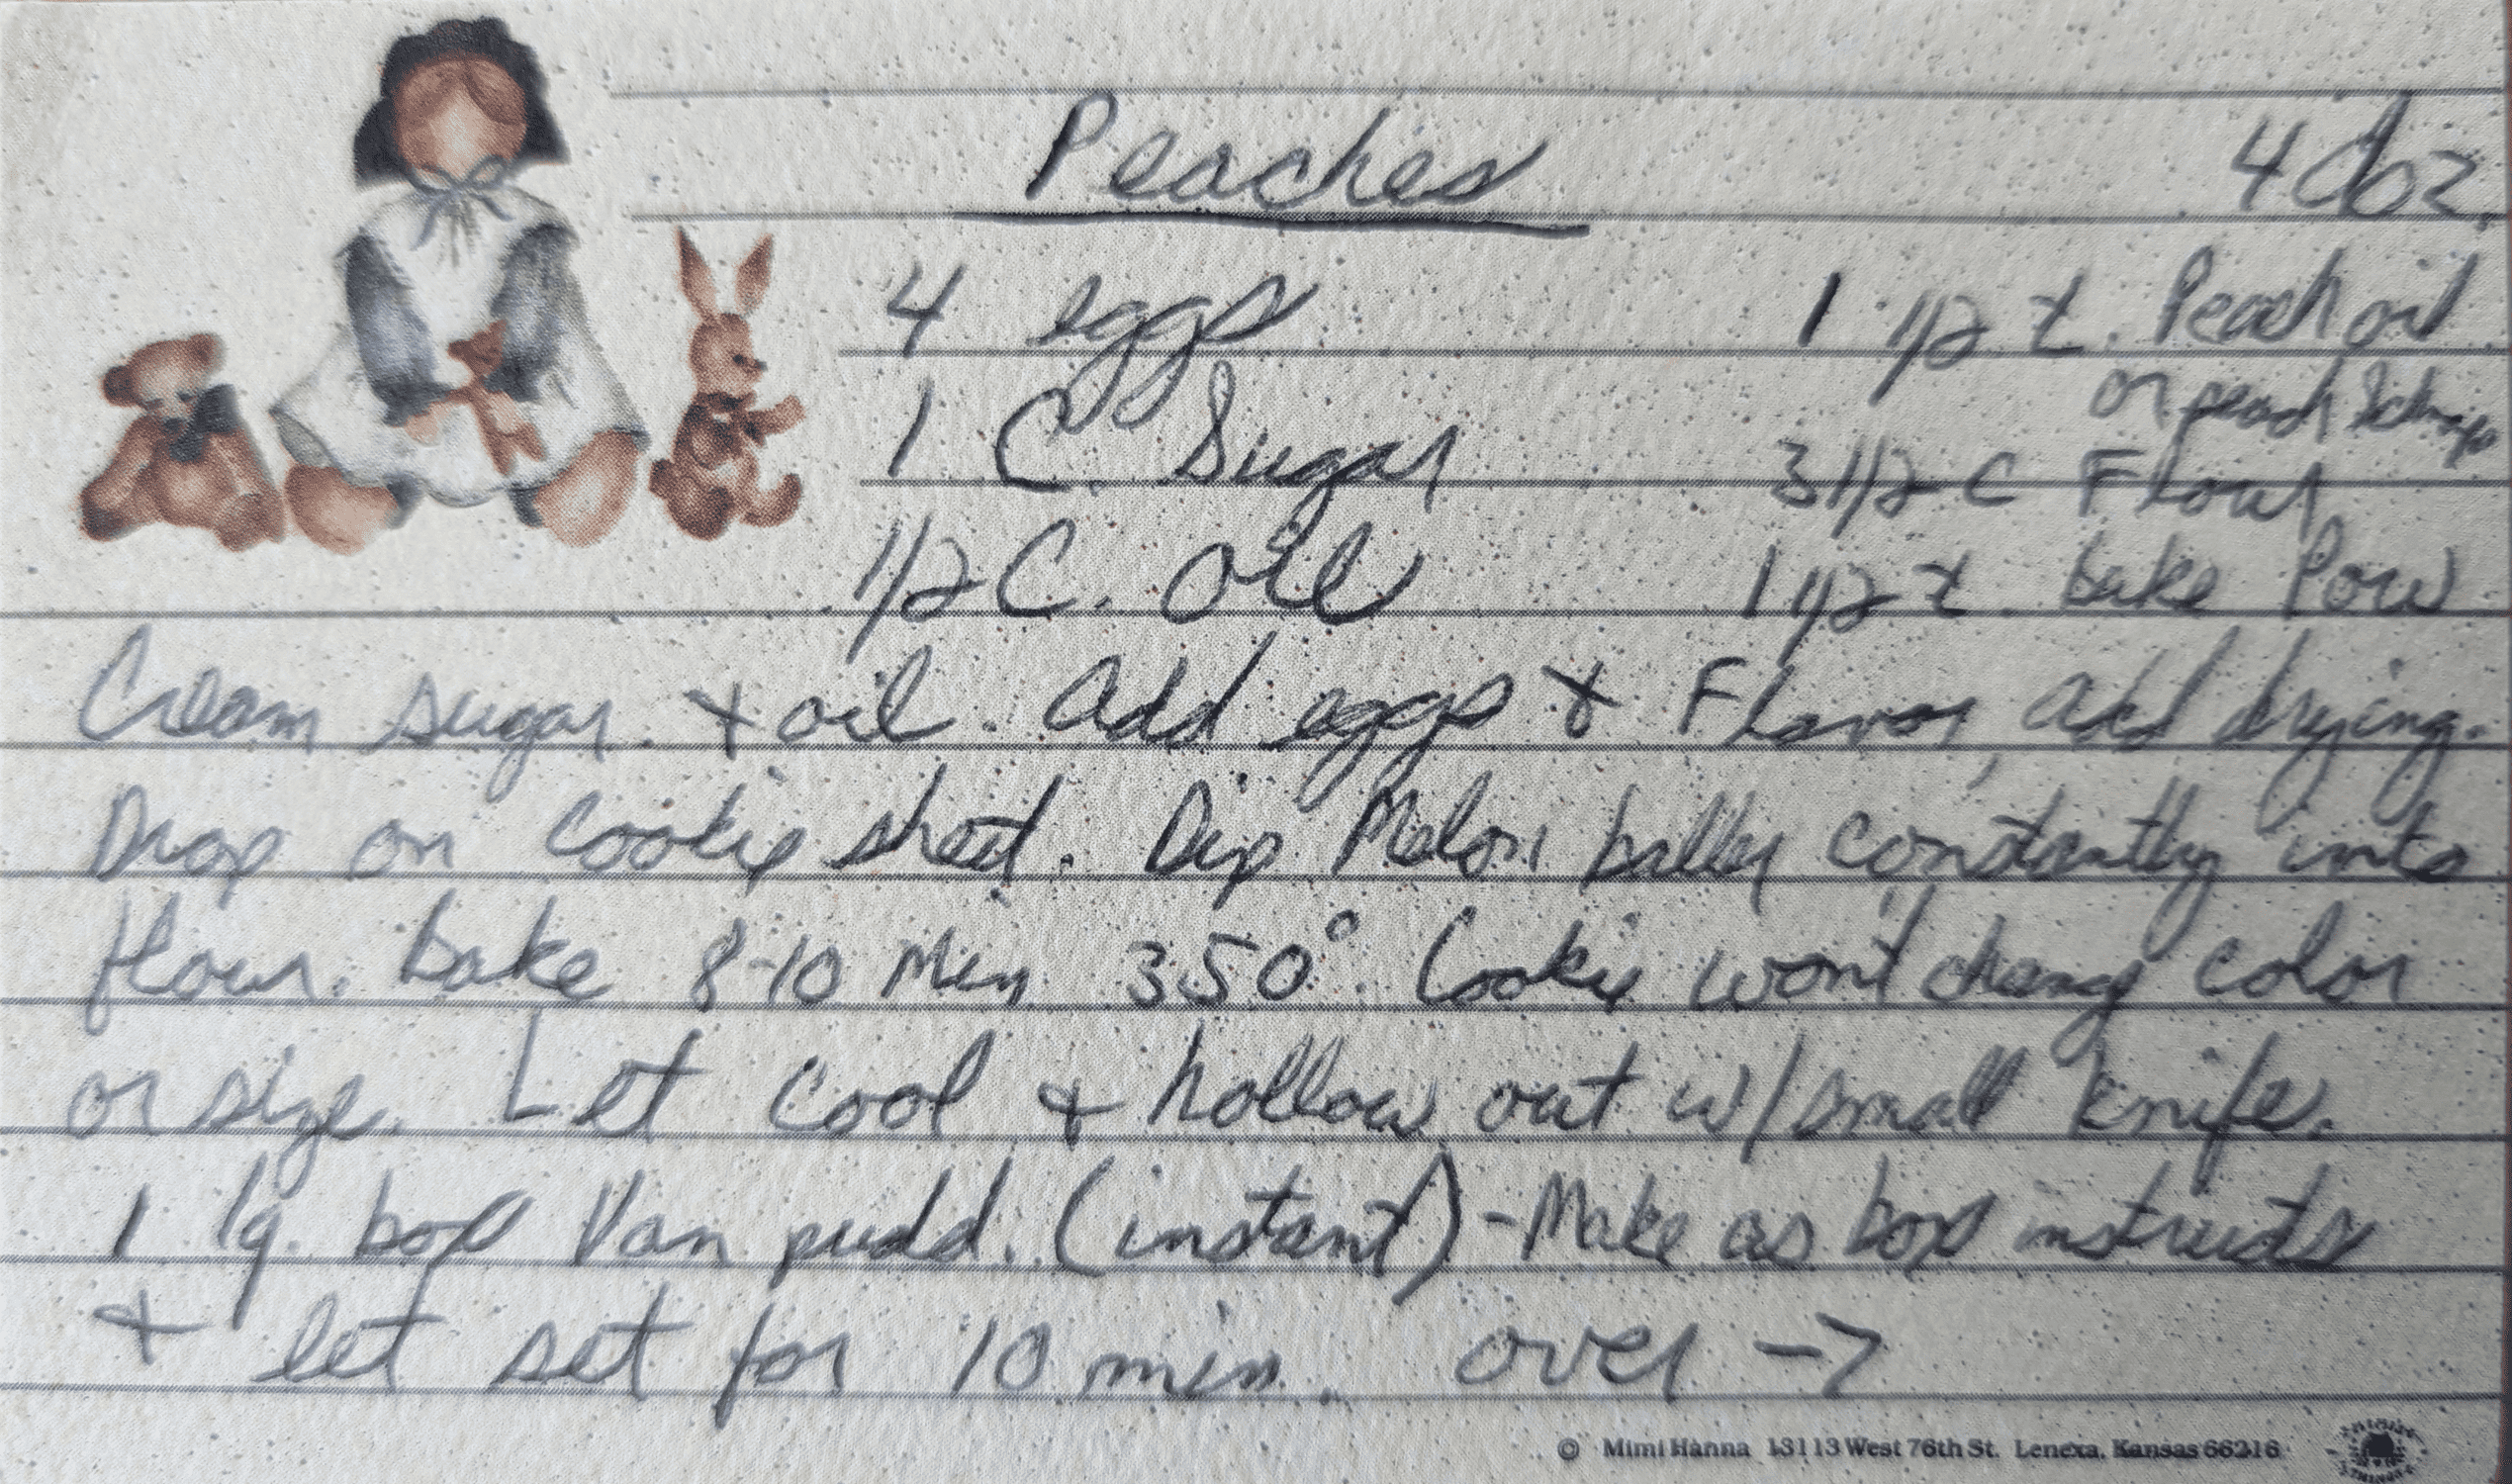 Peaches
4 doz.
4 eggs
1 C Sugar
1/2 C. oil
1 1/2 t. Peach oil
or peach Schnapps
3 1/2 C Flour
1 1/2 t. bake Pow
Cream sugar. + oil. Add eggs & Flavor, add dry ing.
Drop on cookie sheet. Dip Melon baller constantly into
flour. bake 8-10 Min 350° Cookie won't change color
or size. Let cool + hollow out w/small knife.
1 lg. box Van pudd. (instant) - Make as box instructs
+ let set for 10 min. over ->
© Mimi Hanna 13113 West 76th St. Lenexa, Kansas 66216